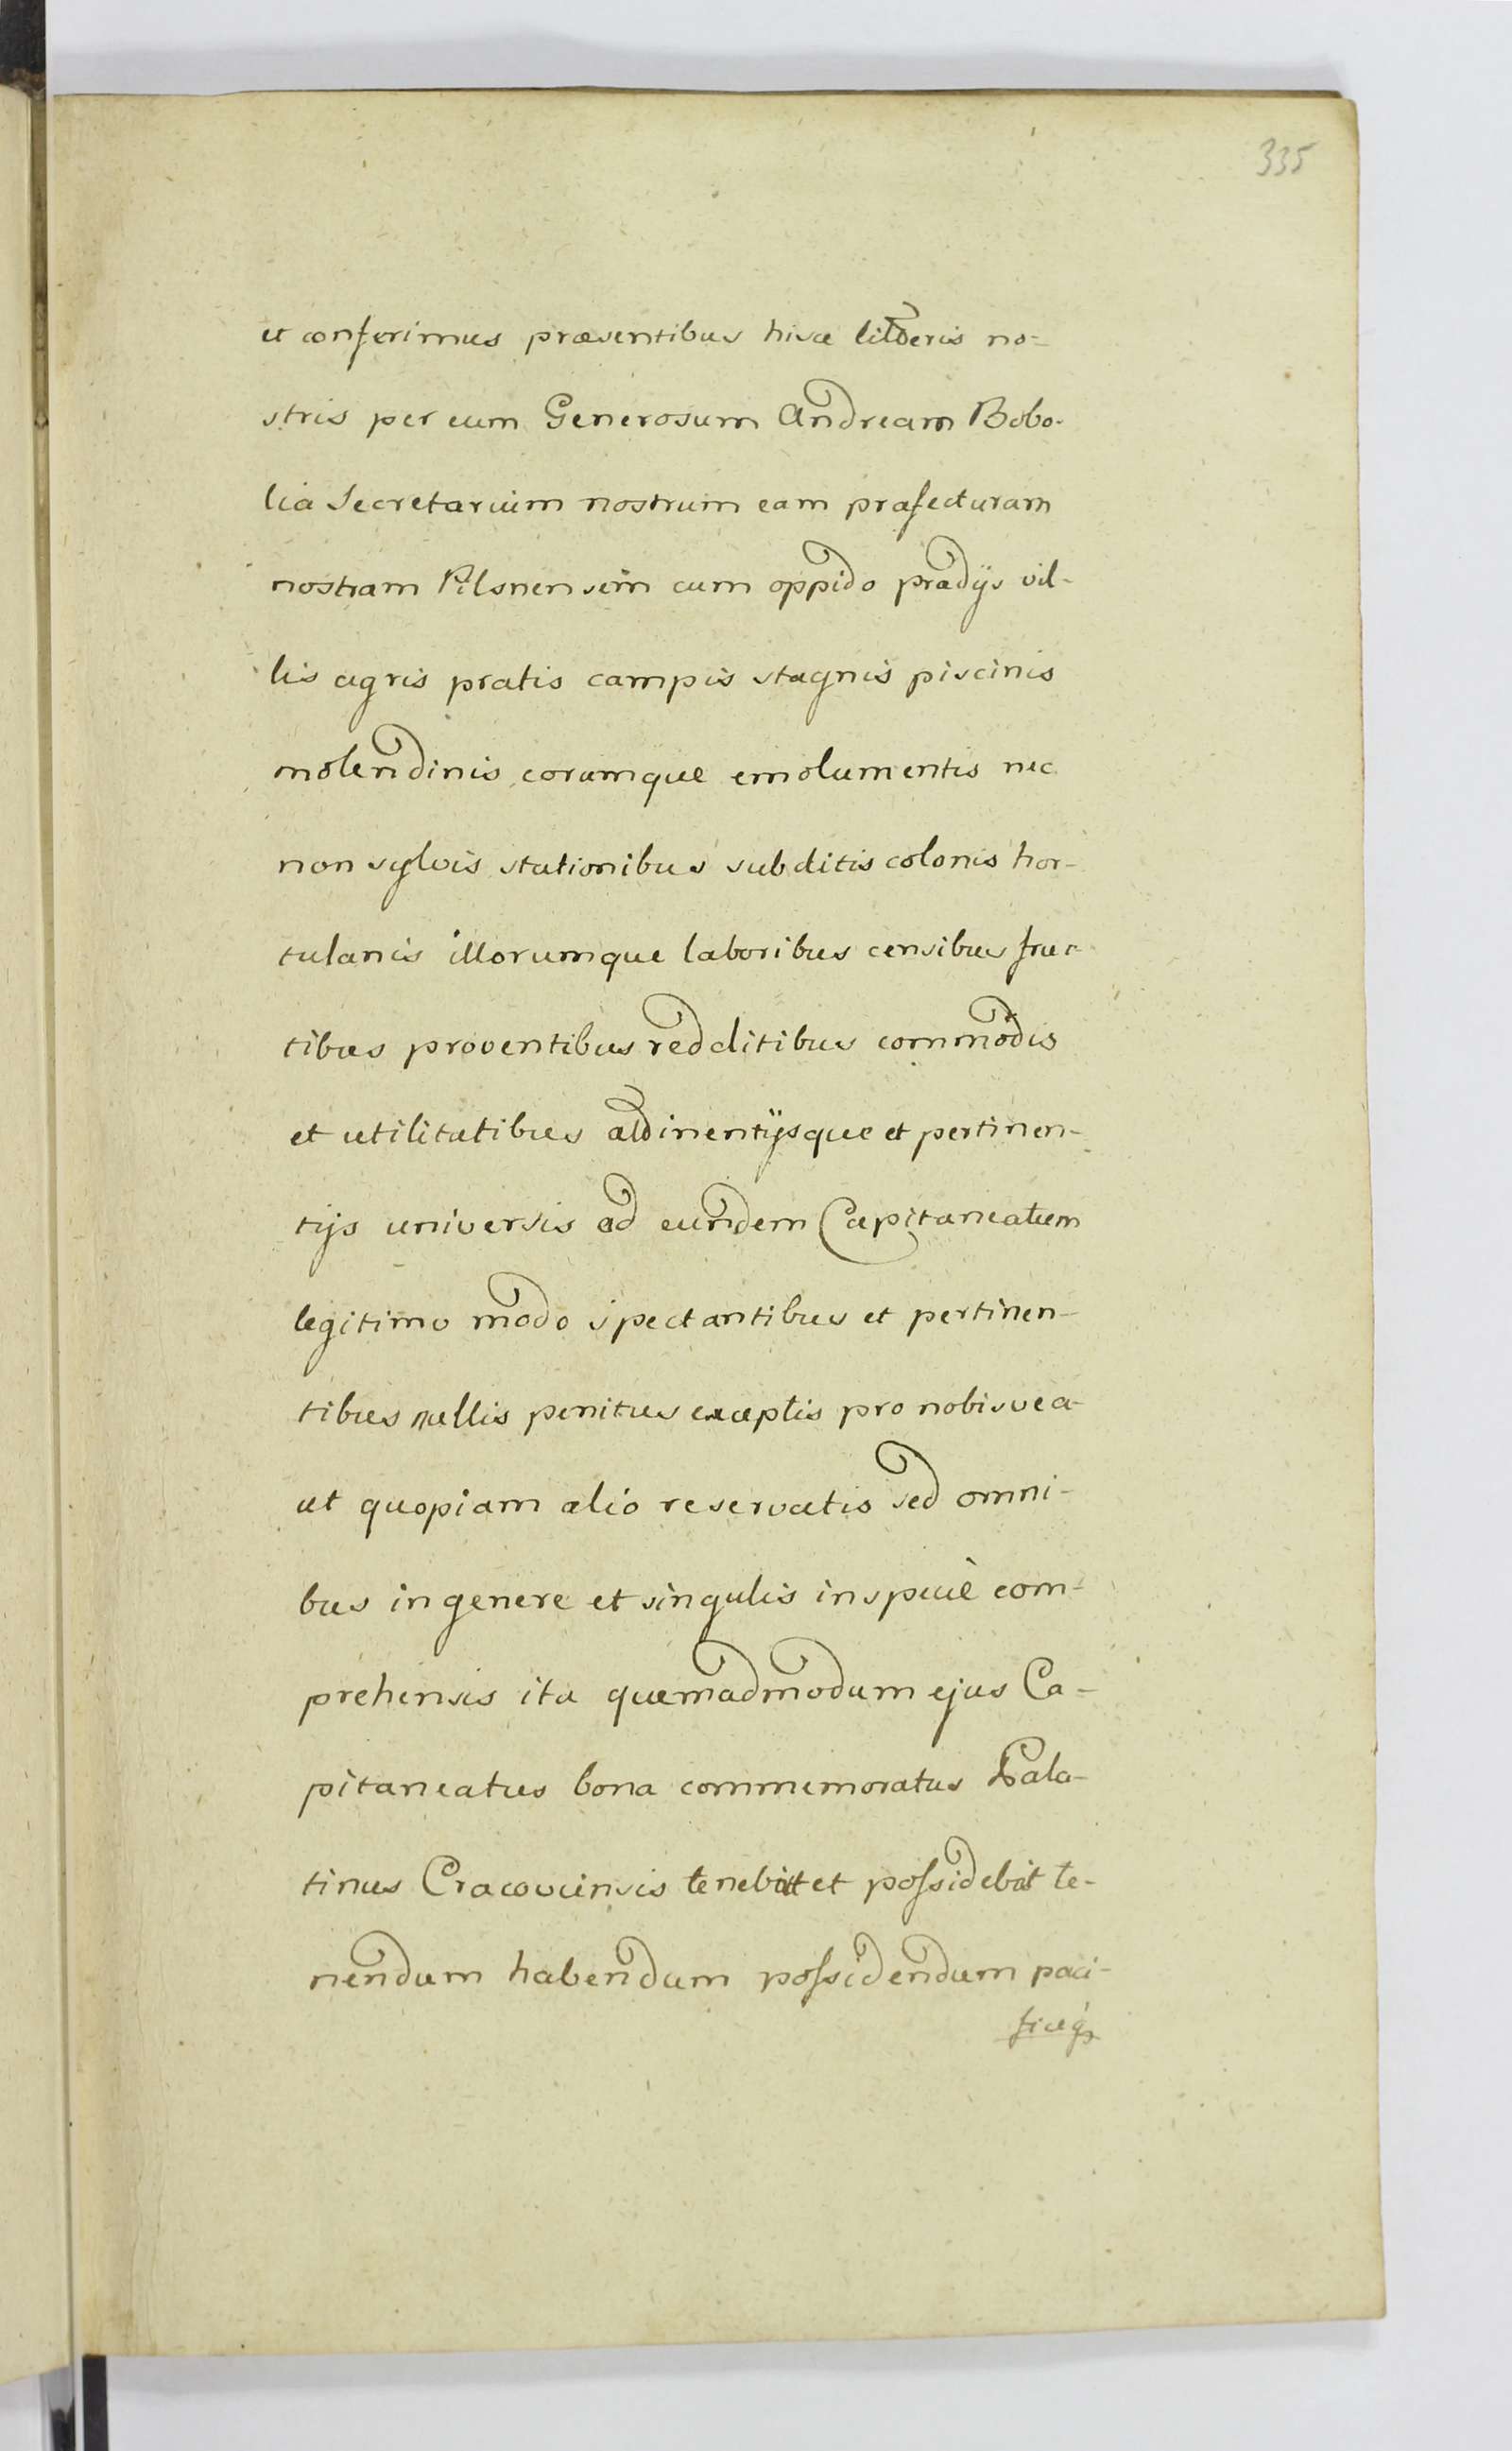 335
et conferimus præsentibus hisce litteris no=
stris per eum Generosum Andream Bobo-
lia Secretarium nostrum eam præfecturam
nostram Pilsnensem cum oppido prædijs vil-
lis agris pratis campis stagnis piscinis
molendinis eorumque emolumentis nec
non sylvis stationibus subditis colonis hor-
tulanis illorumque laboribus censibus fruc-
tibus proventibus redditibus commodis
et utilitatibus attinentijsque et pertinen-
tijs universis ad eundem Capitaneatum
legitimo modo spectantibus et pertinen-
tibus nullis penitus exceptis pro nobisve a-
ut quopiam alio reservatis sed omni-
bus in genere et singulis in specie com-
prehensis ita quemadmodum ejus Ca-
pitaneatus bona commemoratus Pala-
tinus Cracoviensis tenebat et possidebat te-
nendum habendum possidendum paci-
ficeq